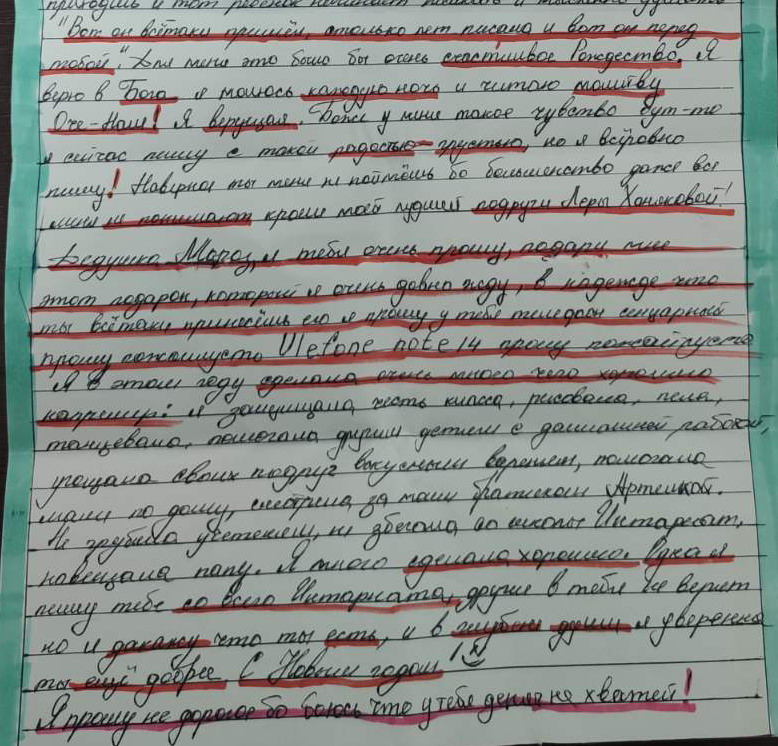 приходишь и тот ребёнок начинает
"Вот он всётаки пришёл, столько лет писала и вот он перед
тобой". Для меня это было бы очень счастливое Рождество. Я
верю в Бога я молюсь каждую ночь и читаю молитву
Оче-Наш! Я верущая. Боже у меня такое чувство бут-то
я сейчас пишу с такой радостью-грустью, но я всёровно
пишу! Наверное ты меня не поймёшь бо большенство даже все
меня не понимают кроме моей лудшей подруги Леры
Дедушка Мороз, я тебя очень прошу, подари мне
этот подарок, который я очень давно жду, в надежде что
ты всётаки принесёшь его я прошу у тебя телефон сенцарный
прошу пожалуста Ulefone note 14 прошу пожайлуста
Я в этом году сделала очень много чего хорошего
например: я защищала честь класса, рисовала, пела,
танцевала, помогала другим детям с домашней работой,
угощала своих подруг вкусным варением, помогала
маме по дому, смотрела за моим братиком Артемкой.
Не грубила учетелям, не збегала со школы Интарнат,
навещала папу. Я много сделала хорошего. Одна я
пишу тебе со всего Интарната, другие в тебя не верят
но я дакажу что ты есть, и в глубене души я уверенна
ты ещё добрее С Новым годом!
Я прошу не дорогое бо боюсь что у тебя денег не хватей!